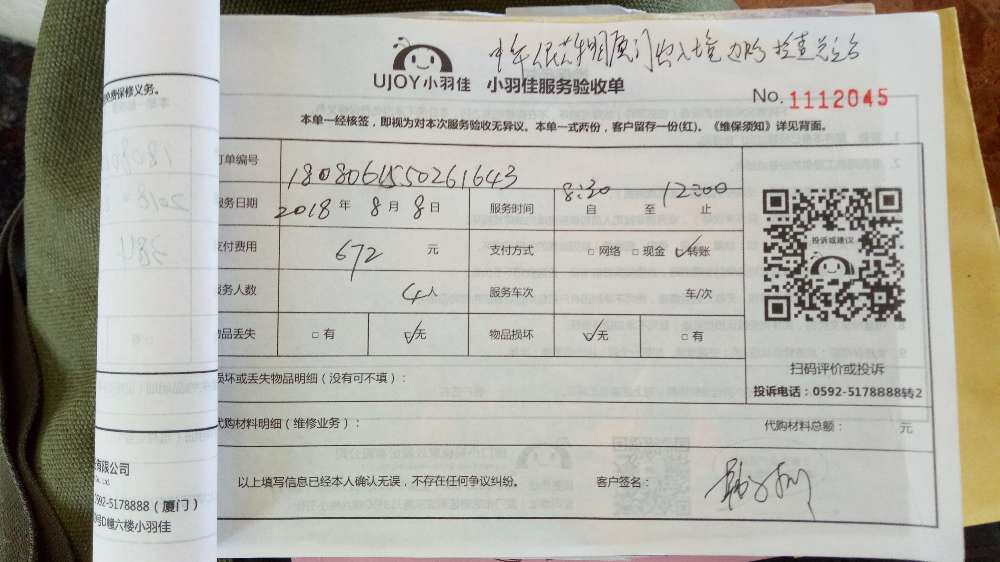 免费保修义务。
有限公司
0592-5178888（厦门）
号D幢六楼小羽佳
厦门出入境边防检查总站
UJOY小羽佳 小羽佳服务验收单
No. 1112045
本单一经核签，即视为对本次服务验收无异议。本单一式两份，客户留存一份(红)。《维保须知》详见背面。
订单编号 1808061550261643
服务日期 2018 年 8 月 8 日 服务时间 8:30 自 至 12:00 止
支付费用 672 元 支付方式 □网络 □现金 ☑转账
服务人数 4人 服务车次 车/次
物品丢失 □有 ☑无 物品损坏 ☑无 □有
投诉或建议
扫码评价或投诉
投诉电话：0592-5178888转2
损坏或丢失物品明细（没有可不填）：
代购材料明细（维修业务）： 代购材料总额： 元
以上填写信息已经本人确认无误，不存在任何争议纠纷。 客户签名：